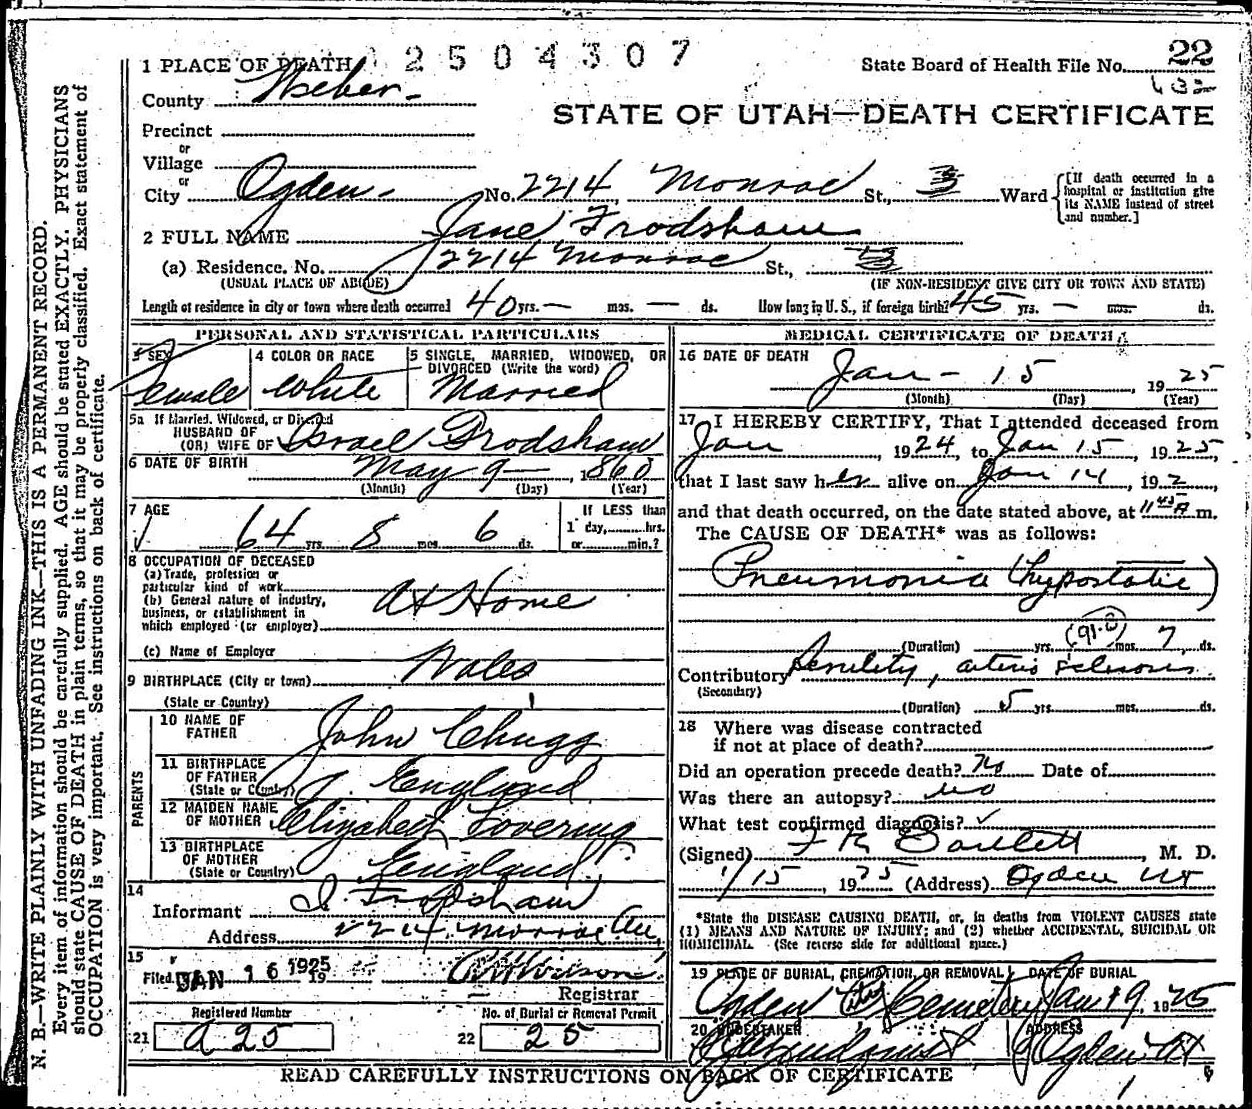 2504307
22
1 PLACE OF DEATH
State Board of Health File No.
County Weber
STATE OF UTAH—DEATH CERTIFICATE
Precinct
or
Village
or
City Ogden No. 2214 Monroe St., 3 Ward
[If death occurred in a hospital or institution give its NAME instead of street and number.]
2 FULL NAME Jane Frodsham
(a) Residence. No. 2214 Monroe St., 3
(USUAL PLACE OF ABODE) (IF NON-RESIDENT GIVE CITY OR TOWN AND STATE)
Length of residence in city or town where death occurred 40 yrs. — mos. — ds. How long in U. S., if foreign birth? 45 yrs. — mos. ds.
PERSONAL AND STATISTICAL PARTICULARS
3 SEX Female
4 COLOR OR RACE White
5 SINGLE, MARRIED, WIDOWED, OR DIVORCED (Write the word) Married
5a If Married, Widowed, or Divorced
HUSBAND OF
(OR) WIFE OF Israel Frodsham
6 DATE OF BIRTH May 9— 1860
(Month) (Day) (Year)
7 AGE 64 yrs. 8 mos. 6 ds.
If LESS than
1 day, hrs.
or min.?
8 OCCUPATION OF DECEASED
(a) Trade, profession or
particular kind of work
(b) General nature of industry,
business, or establishment in
which employed (or employer)
At Home
(c) Name of Employer
9 BIRTHPLACE (City or town) Wales
(State or Country)
PARENTS
10 NAME OF FATHER John Chugg
11 BIRTHPLACE OF FATHER (State or Country) England
12 MAIDEN NAME OF MOTHER Elizabeth Lovering
13 BIRTHPLACE OF MOTHER (State or Country) England
14
Informant I. Frodsham
Address 2214 Monroe Av.
15
Filed JAN 16 1925 19
Registrar
Registered Number
21 a 25
No. of Burial or Removal Permit
22 25
MEDICAL CERTIFICATE OF DEATH
16 DATE OF DEATH
Jan - 15, 1925
(Month) (Day) (Year)
17 I HEREBY CERTIFY, That I attended deceased from
Jan, 1924, to Jan 15, 1925,
that I last saw her alive on Jan 14, 192 ,
and that death occurred, on the date stated above, at 11 45 A m.
The CAUSE OF DEATH* was as follows:
Pneumonia (hypostatic)
(Duration) yrs. mos. 7 ds.
Contributory Senility, arterio sclerosis
(Secondary)
(Duration) 5 yrs. mos. ds.
18 Where was disease contracted
if not at place of death?
Did an operation precede death? No Date of
Was there an autopsy? no
What test confirmed diagnosis?
(Signed) F K Bartlett, M. D.
1/15, 1925 (Address) Ogden Ut
*State the DISEASE CAUSING DEATH, or, in deaths from VIOLENT CAUSES state
(1) MEANS AND NATURE OF INJURY; and (2) whether ACCIDENTAL, SUICIDAL OR
HOMICIDAL. (See reverse side for additional space.)
19 PLACE OF BURIAL, CREMATION, OR REMOVAL Ogden City Cemetery
DATE OF BURIAL Jan 19, 1925
20 UNDERTAKER
ADDRESS Ogden Ut
READ CAREFULLY INSTRUCTIONS ON BACK OF CERTIFICATE
N. B.—WRITE PLAINLY WITH UNFADING INK—THIS IS A PERMANENT RECORD.
Every item of information should be carefully supplied. AGE should be stated EXACTLY. PHYSICIANS
should state CAUSE OF DEATH in plain terms, so that it may be properly classified. Exact statement of
OCCUPATION is very important. See instructions on back of certificate.